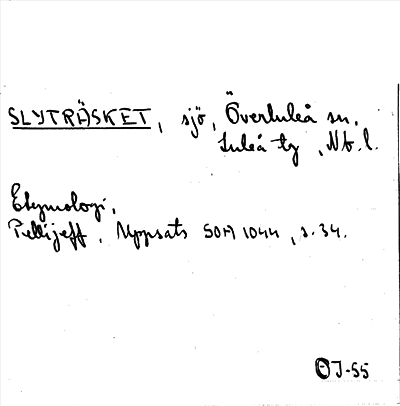 SLYTRÄSKET, sjö, Överluleå sn,
Luleå tg, Nb. l.
Etymologi,
Pellijeff, Uppsats SOM 1044, s. 34.
OJ-55